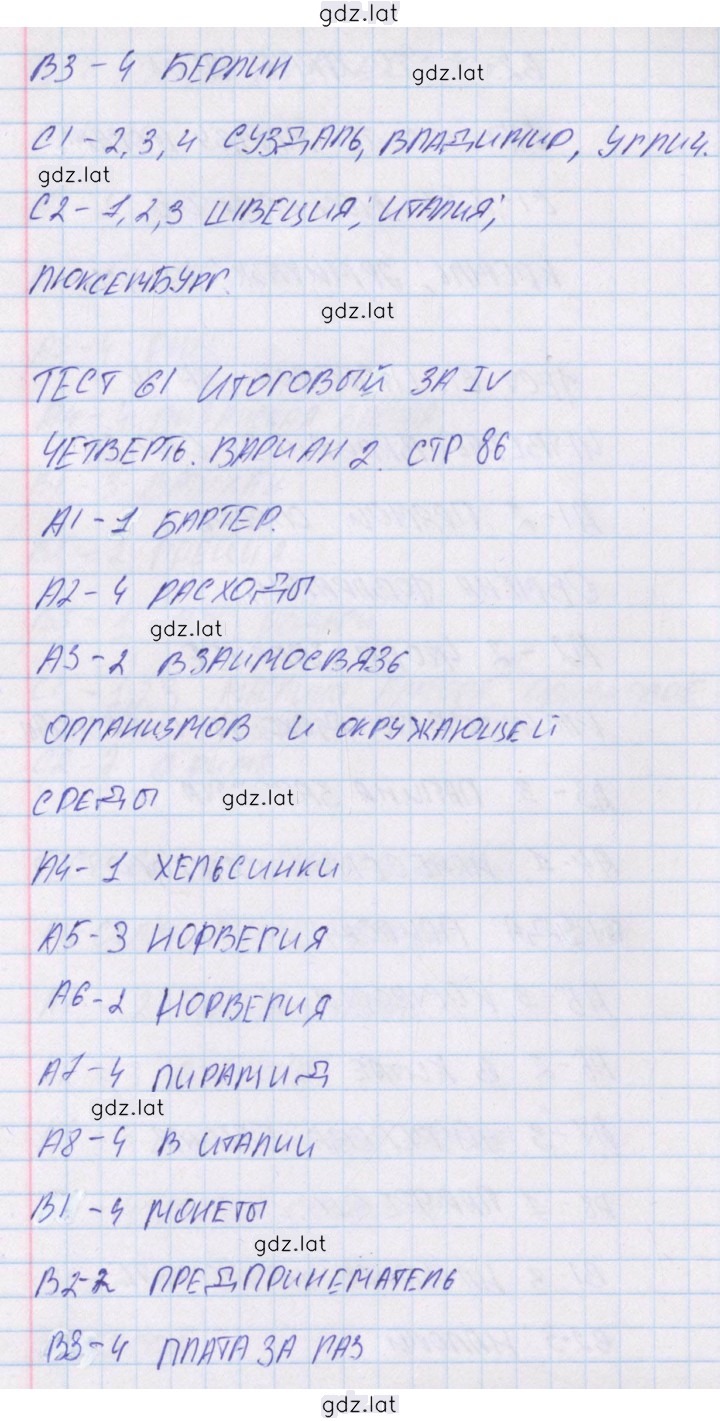 gdz.lat
В3 – 4 БЕРЛИН
gdz.lat
С1 – 2, 3, 4 СУЗДАЛЬ, ВЛАДИМИР, УГЛИЧ.
gdz.lat
С2 – 1, 2, 3 ШВЕЦИЯ; ИТАЛИЯ;
ЛЮКСЕМБУРГ.
gdz.lat
ТЕСТ 61 ИТОГОВЫЙ ЗА IV
ЧЕТВЕРТЬ. ВАРИАН 2. СТР 86
А1 – 1 БАРТЕР.
А2 – 4 РАСХОДЫ
gdz.lat
А3 – 2 ВЗАИМОСВЯЗЬ
ОРГАНИЗМОВ И ОКРУЖАЮЩЕЙ
СРЕДЫ
gdz.lat
А4 – 1 ХЕЛЬСИНКИ
А5 – 3 НОРВЕГИЯ
А6 – 2 НОРВЕГИЯ
А7 – 4 ПИРАМИД
gdz.lat
А8 – 4 В ИТАЛИИ
В1 – 4 МОНЕТЫ
gdz.lat
В2 – 2 ПРЕДПРИНЕМАТЕЛЬ
В3 – 4 ПЛАТА ЗА ГАЗ
gdz.lat